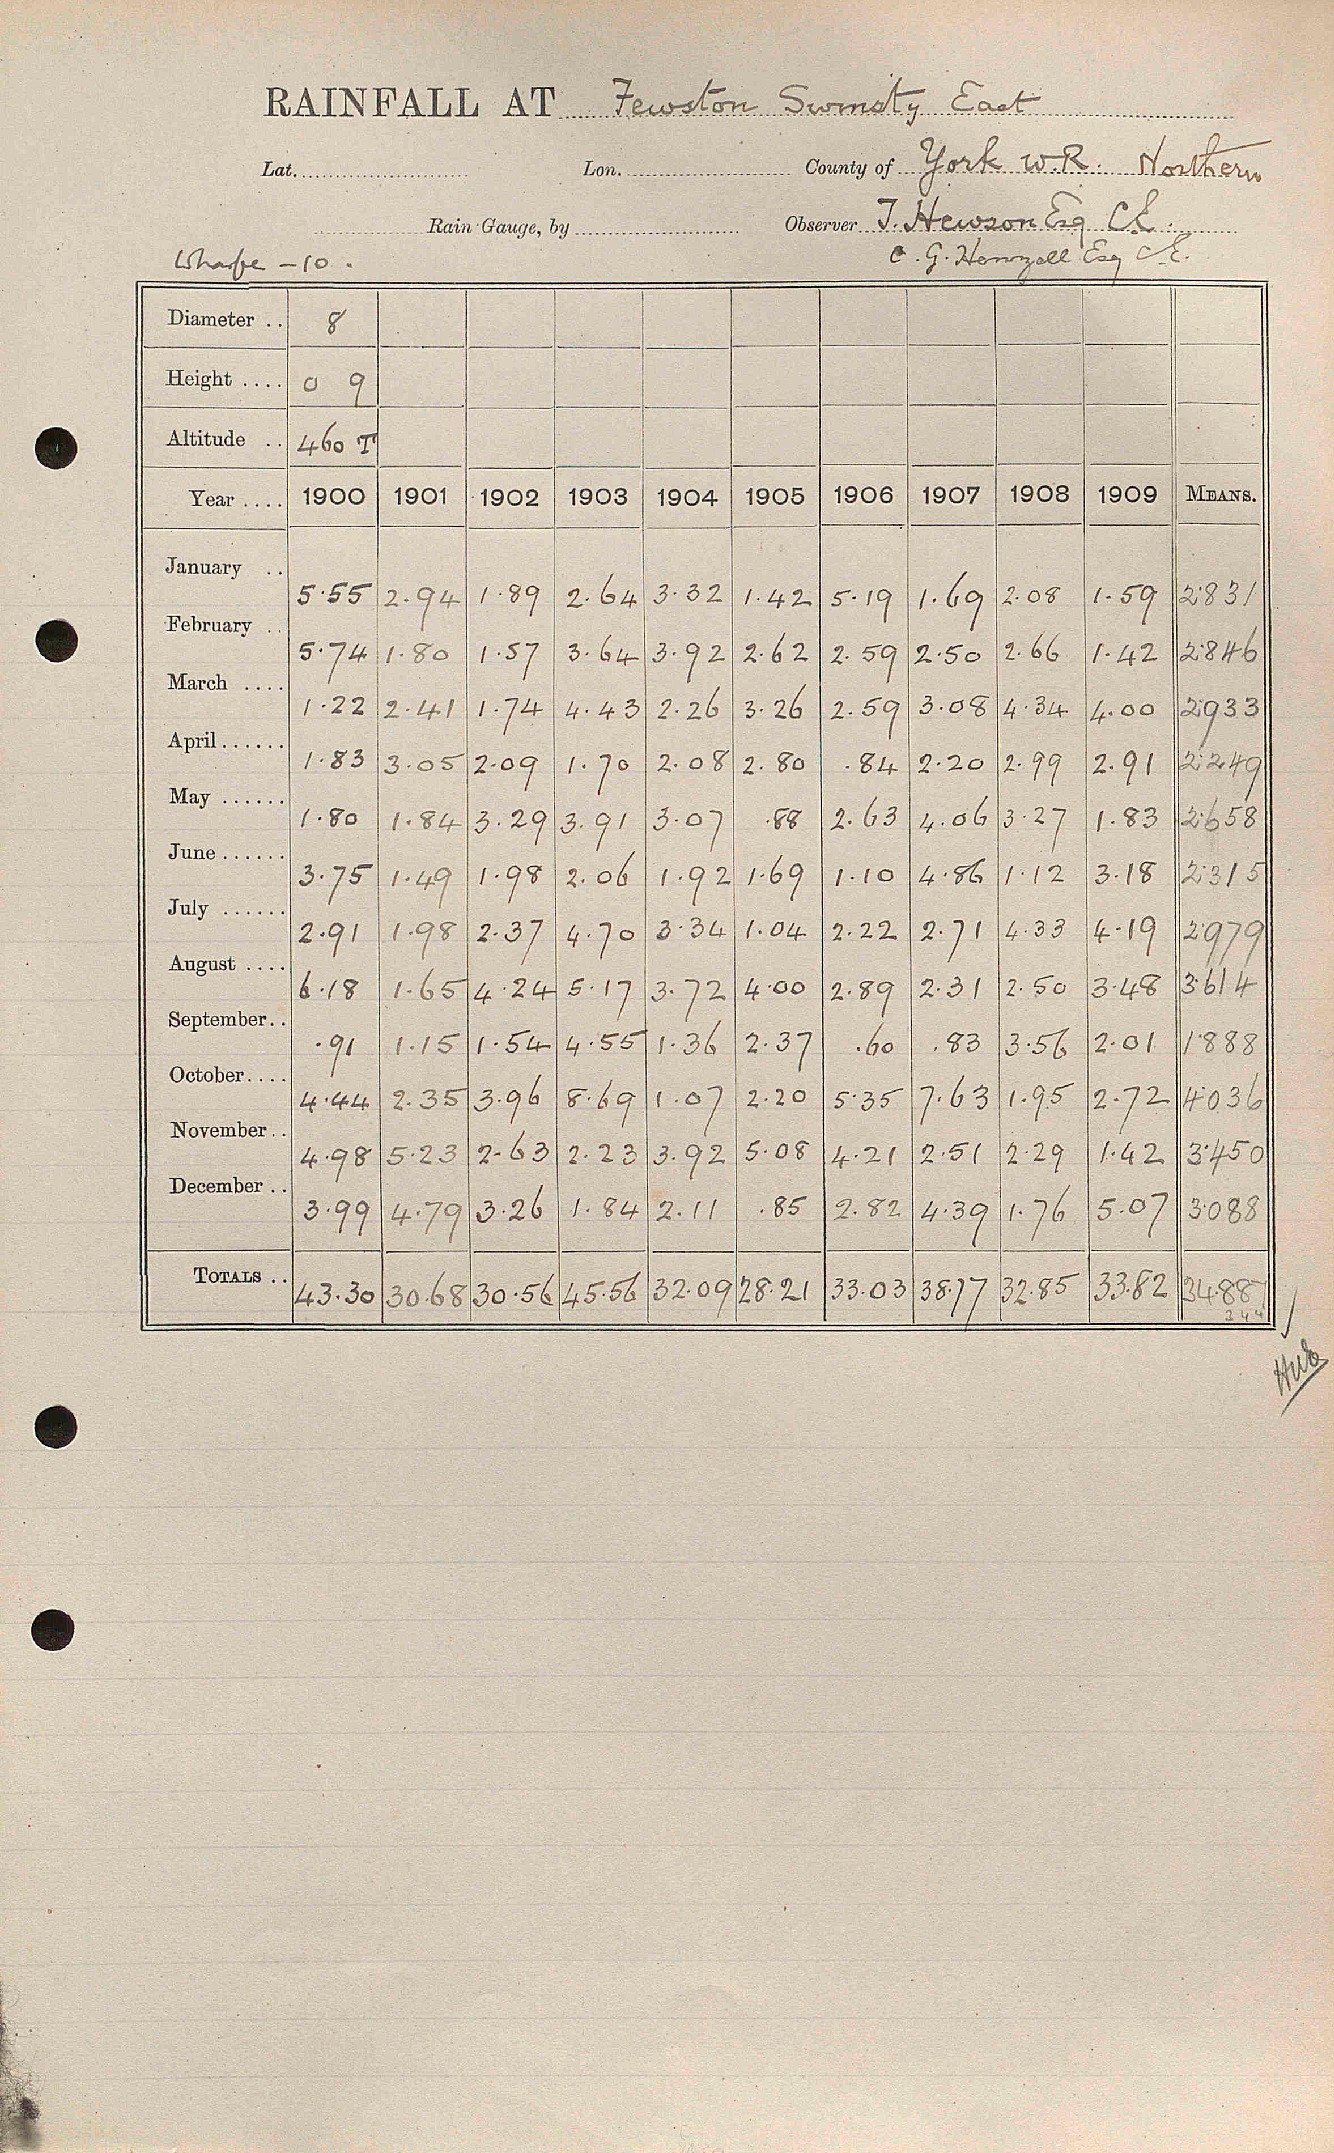 RAINFALL AT Fewston Swinsty East
Lat. Lon. County of York W.R. Northern
Rain Gauge, by Observer T. Hewson Esq C.E.
Wharfe - 10. C. G. Henzell Esq C.E.
Diameter .. 8
Height .... 0 9
Altitude .. 460 T
Year .... 1900 1901 1902 1903 1904 1905 1906 1907 1908 1909 MEANS.
January .. 5.55 2.94 1.89 2.64 3.32 1.42 5.19 1.69 2.08 1.59 2.831
February .. 5.74 1.80 1.57 3.64 3.92 2.62 2.59 2.50 2.66 1.42 2.846
March .... 1.22 2.41 1.74 4.43 2.26 3.26 2.59 3.08 4.34 4.00 2.933
April ...... 1.83 3.05 2.09 1.70 2.08 2.80 .84 2.20 2.99 2.91 2.249
May ...... 1.80 1.84 3.29 3.91 3.07 .88 2.63 4.06 3.27 1.83 2.658
June ...... 3.75 1.49 1.98 2.06 1.92 1.69 1.10 4.86 1.12 3.18 2.315
July ...... 2.91 1.98 2.37 4.70 3.34 1.04 2.22 2.71 4.33 4.19 2.979
August .... 6.18 1.65 4.24 5.17 3.72 4.00 2.89 2.31 2.50 3.48 3.614
September .. .91 1.15 1.54 4.55 1.36 2.37 .60 .83 3.56 2.01 1.888
October .... 4.44 2.35 3.96 8.69 1.07 2.20 5.35 7.63 1.95 2.72 4.036
November .. 4.98 5.23 2.63 2.23 3.92 5.08 4.21 2.51 2.29 1.42 3.450
December .. 3.99 4.79 3.26 1.84 2.11 .85 2.82 4.39 1.76 5.07 3.088
TOTALS .. 43.30 30.68 30.56 45.56 32.09 28.21 33.03 38.77 32.85 33.82 34.887